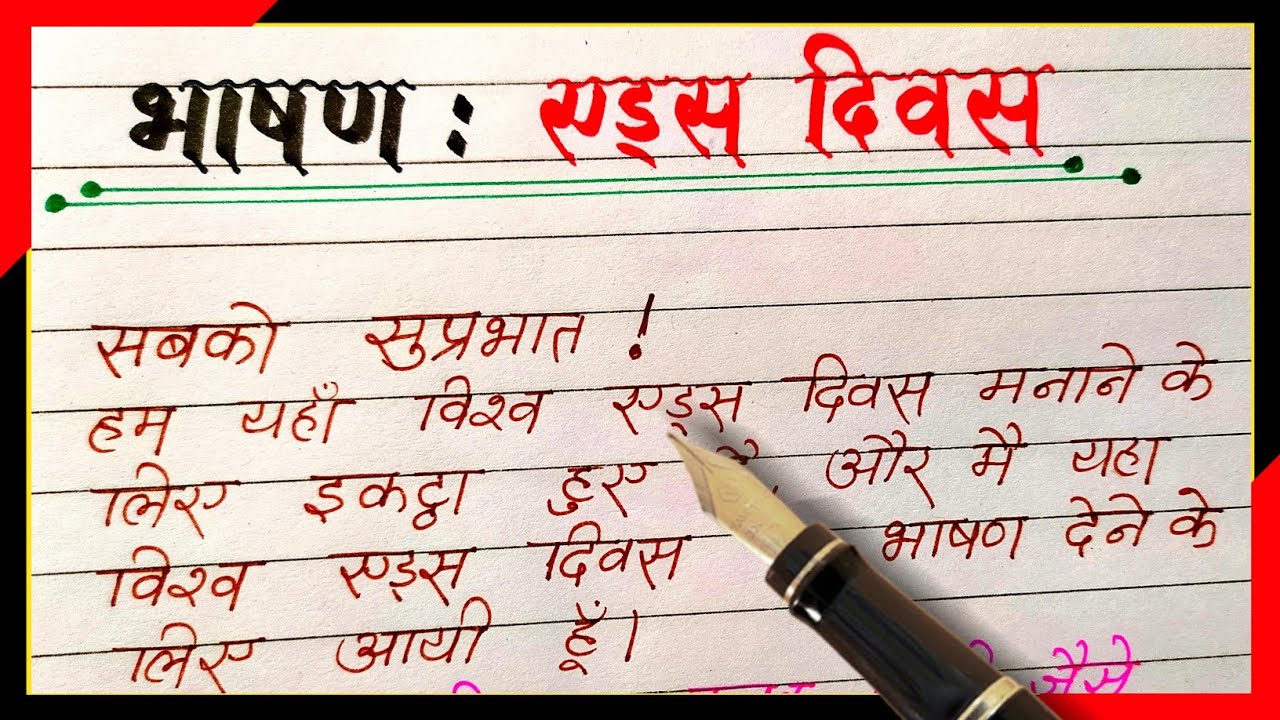 भाषण : एड्स दिवस
सबको सुप्रभात !
हम यहाँ विश्व एड्स दिवस मनाने के
लिए इकट्ठा हुए और मै यहा
विश्व एड्स दिवस भाषण देने के
लिए आयी हूँ।
जैसे